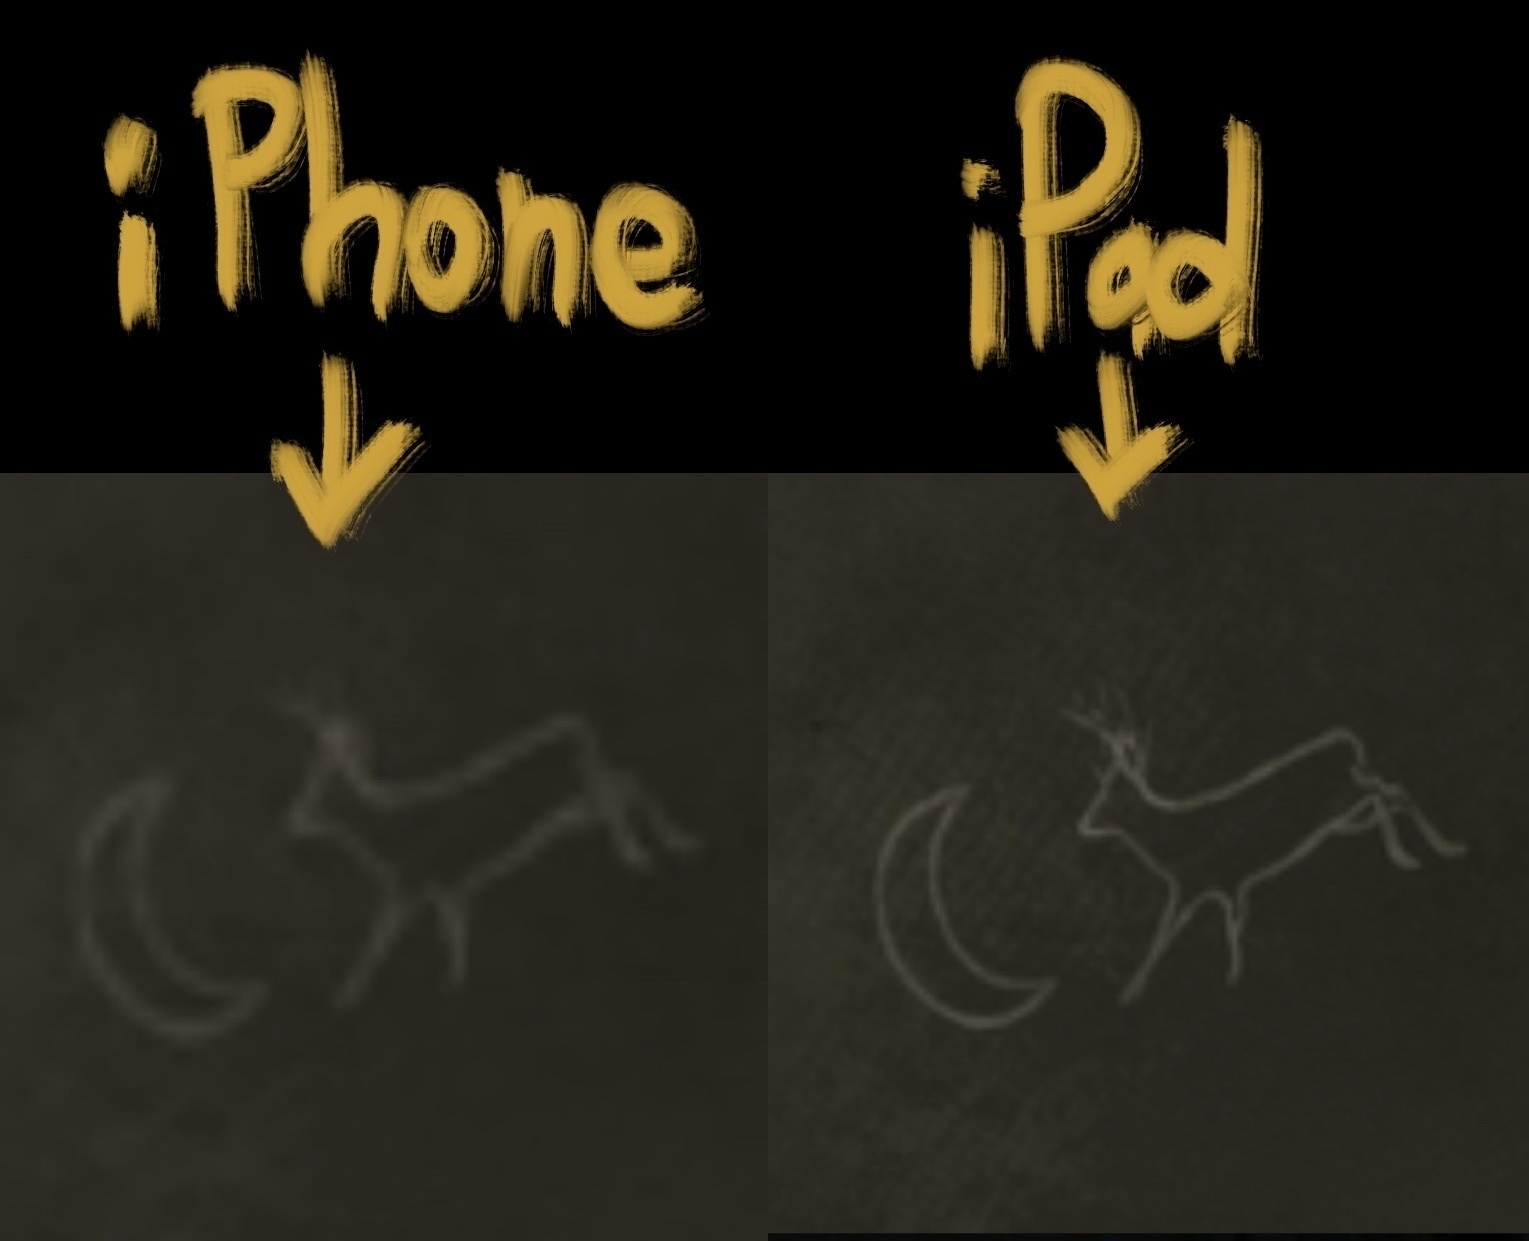 iPhone iPad